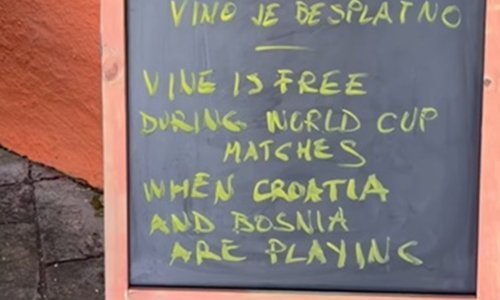 VINO JE BESPLATNO
VINE IS FREE
DURING WORLD CUP
MATCHES
WHEN CROATIA
AND BOSNIA
ARE PLAYING